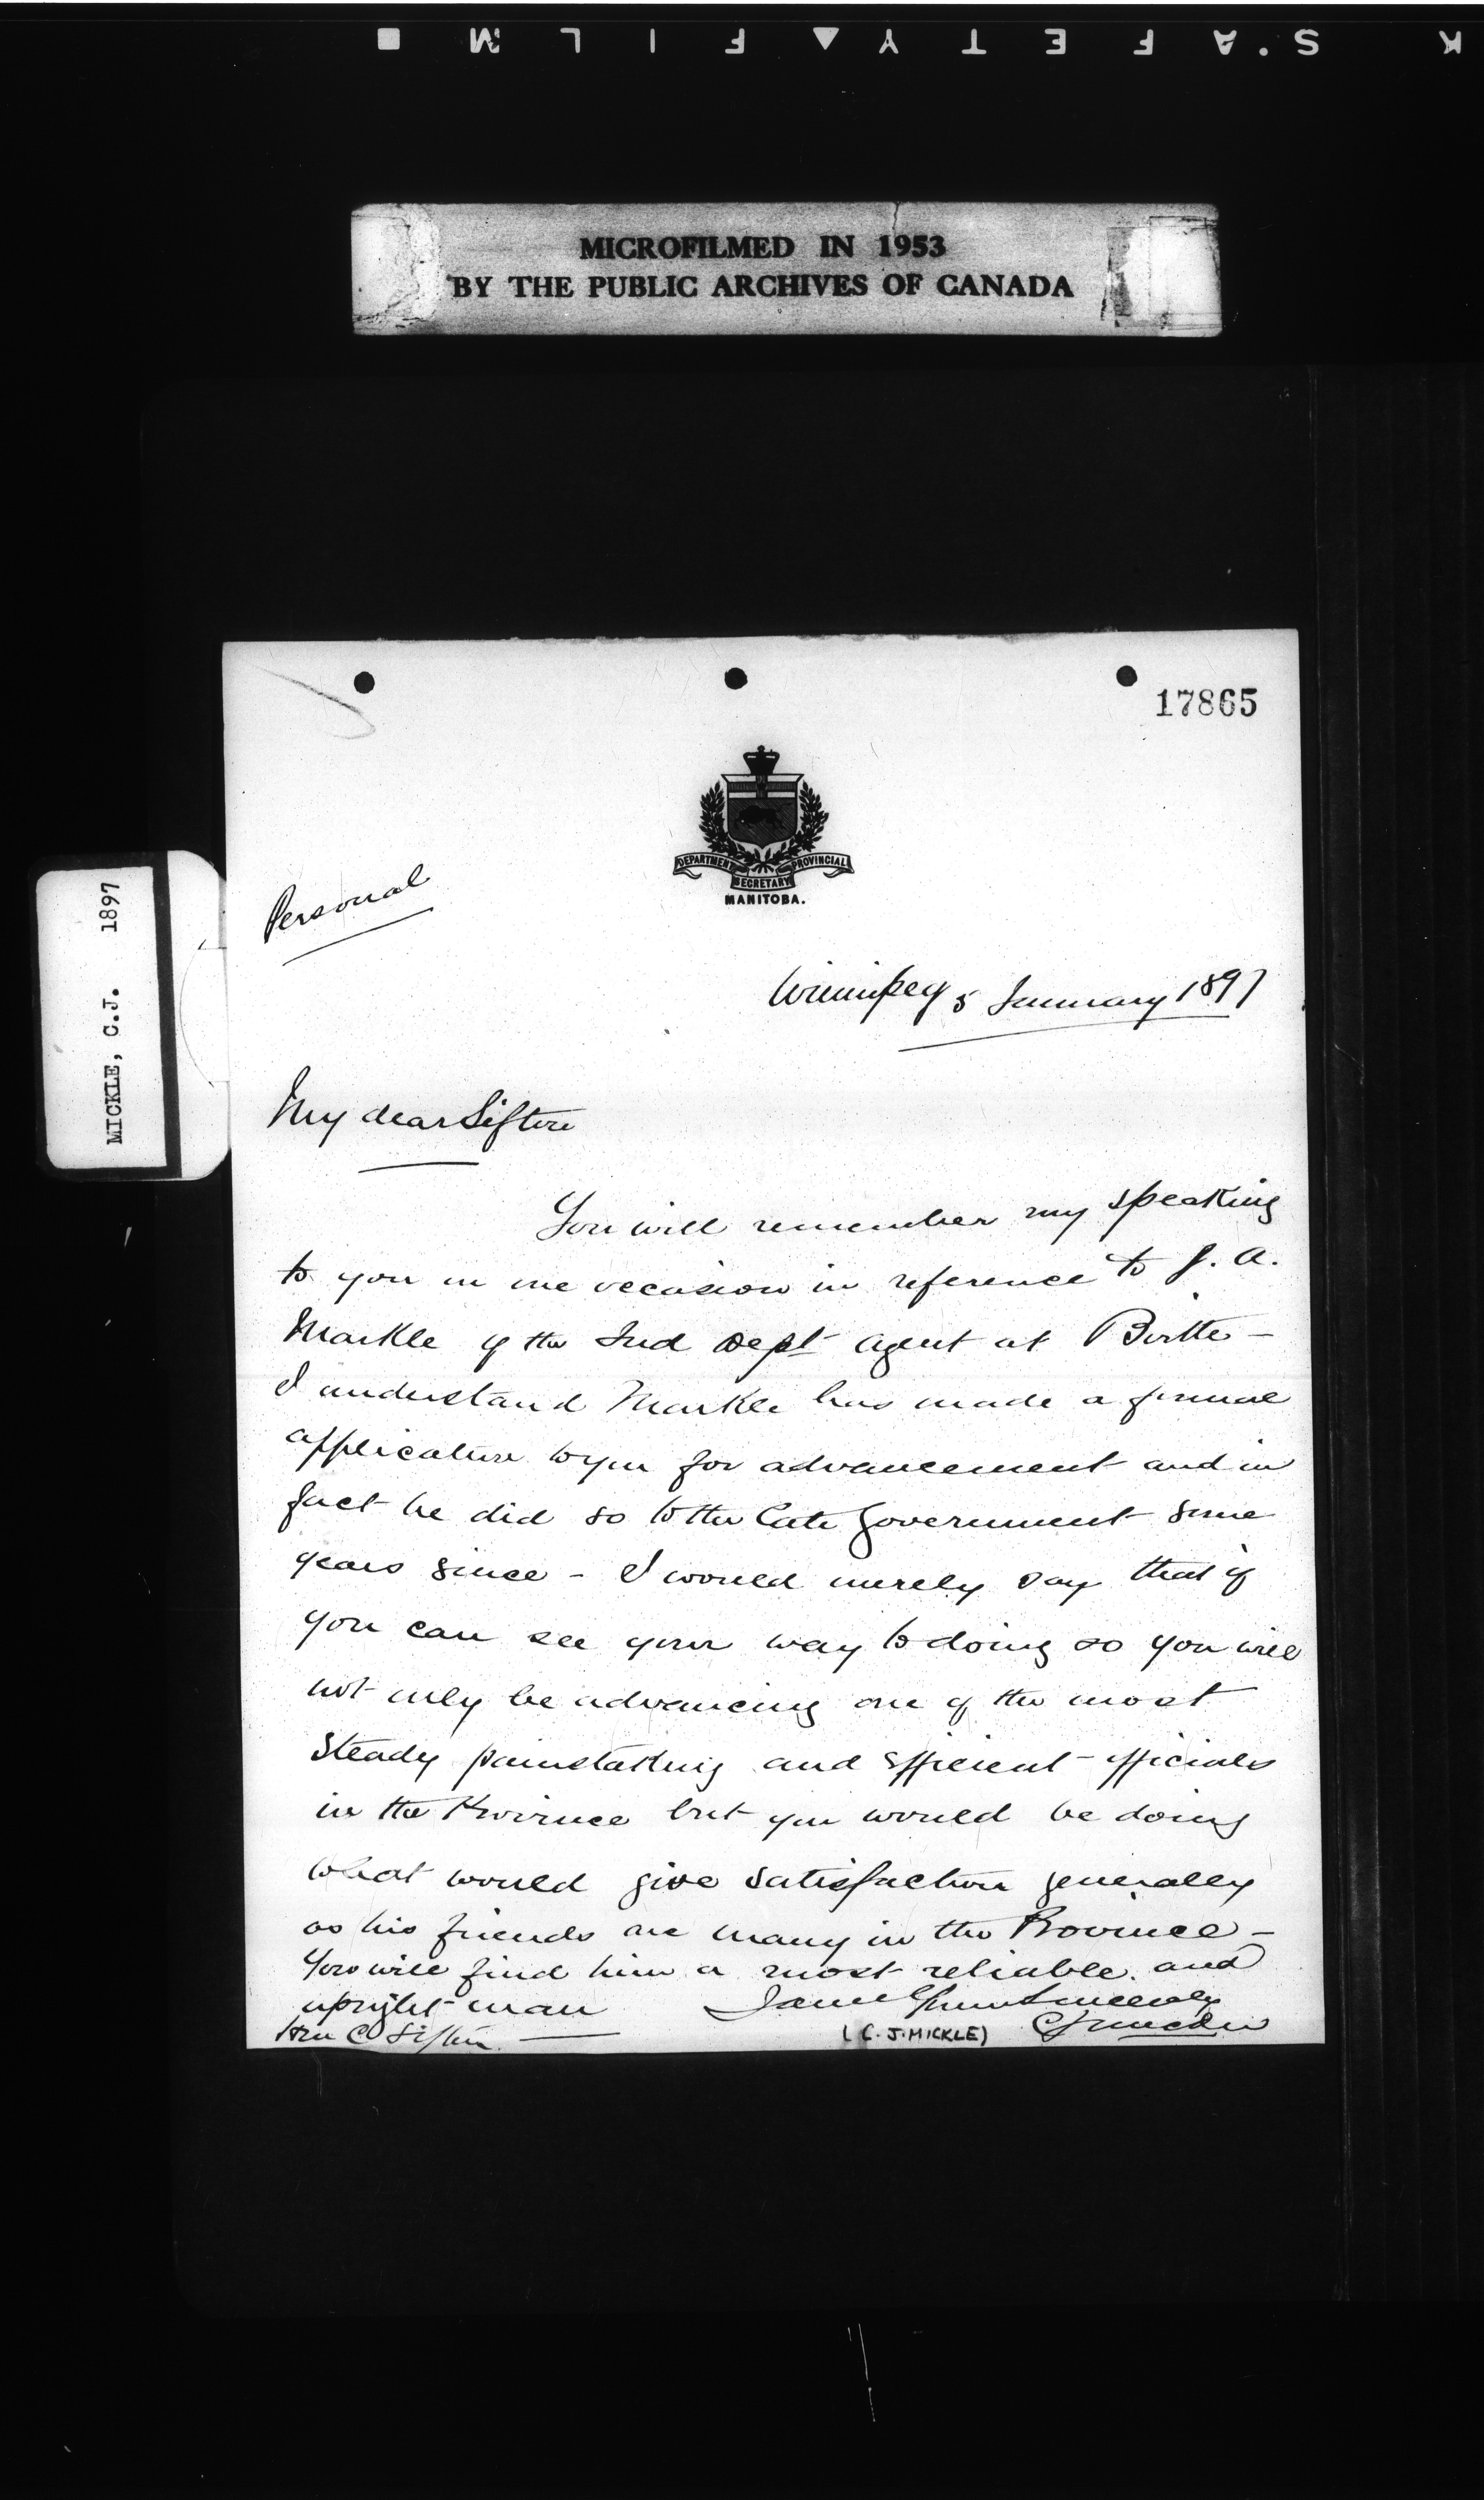 K S.AFETY▲FILM■
MICROFILMED IN 1953
BY THE PUBLIC ARCHIVES OF CANADA
17865
DEPARTMENT PROVINCIAL
SECRETARY
MANITOBA.
MICKLE, C.J. 1897
Personal
Winnipeg 5 January 1897
My dear Sifton
You will remember my speaking
to you on one occasion in reference to J. A.
Markle of the Ind Dept Agent at Birtle —
I understand Markle has made a formal
application to you for advancement and in
fact he did so to the late Government some
years since - I would merely say that if
you can see your way to doing so you will
not only be advancing one of the most
steady painstaking and efficient officials
in the Province but you would be doing
what would give satisfaction generally
as his friends are many in the Province —
You will find him a most reliable and
upright man
Yours Sincerely
Hon C Sifton
(C.J. MICKLE) CJ Mickle